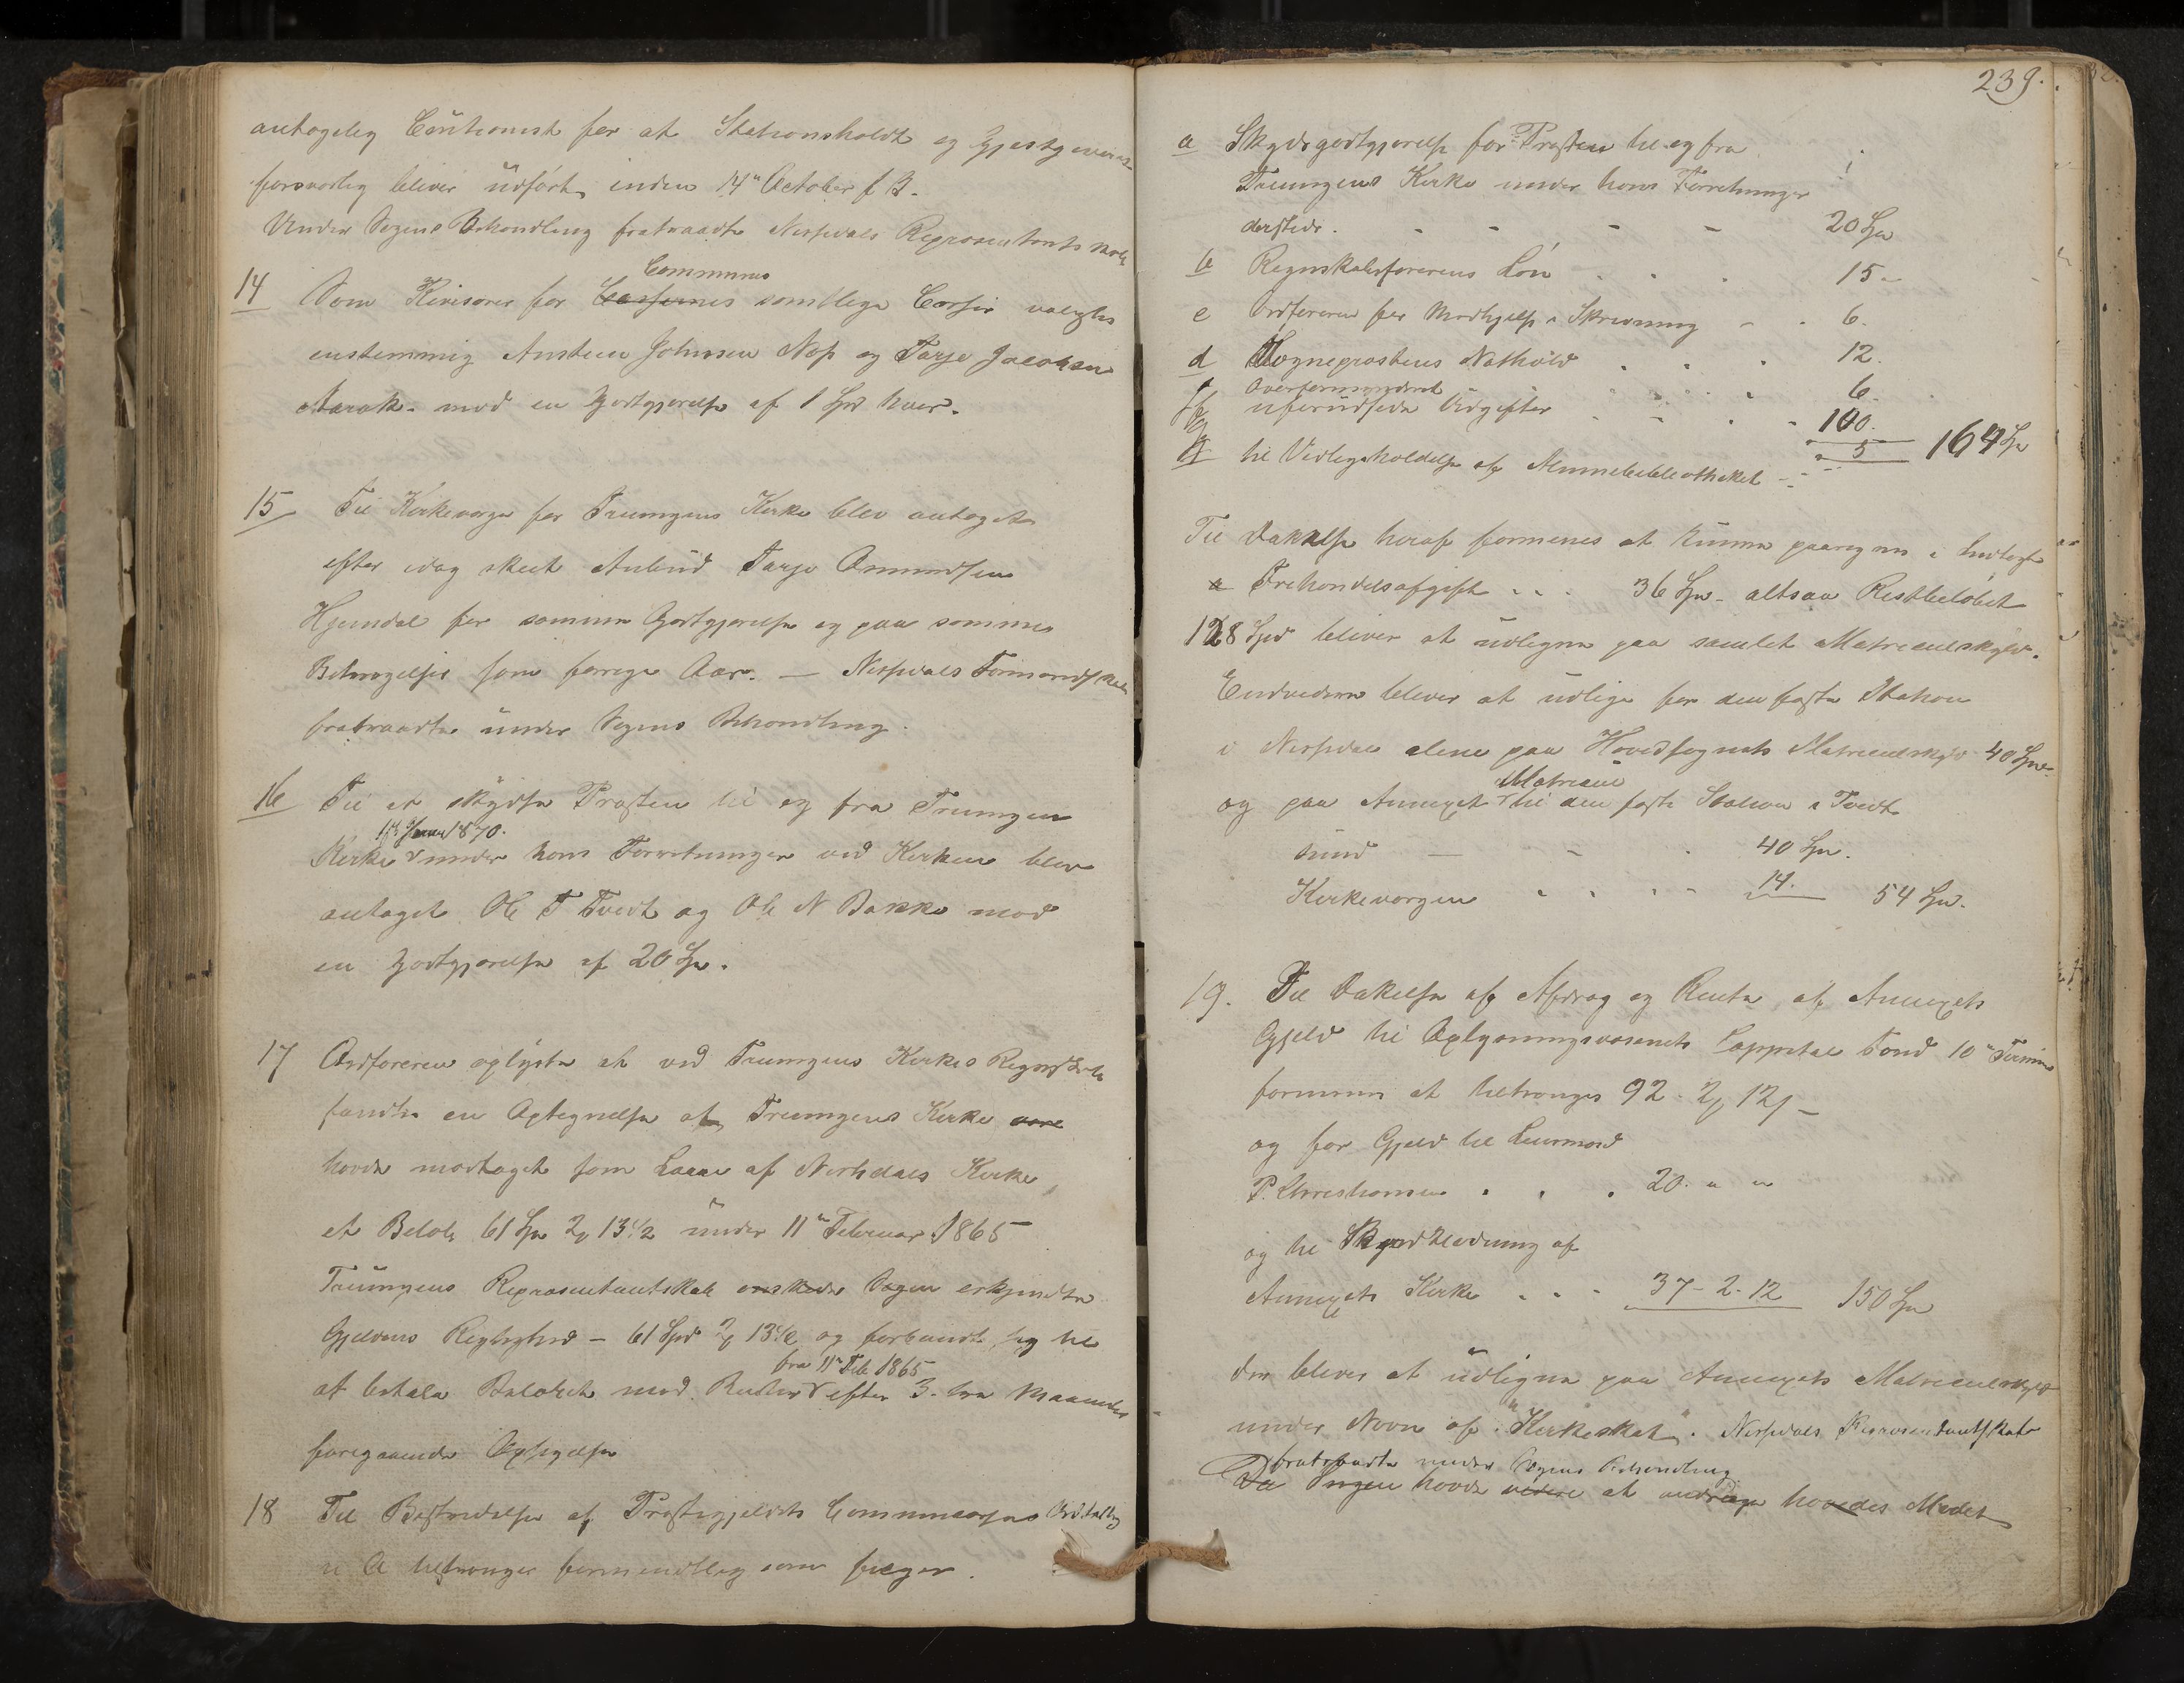 antagelig Cautionist for at Stationsholdt og Gjestgiveriet
forsvarlig bliver udført inden 14n October f. A.
Under Sagens Behandling fratraadte Nissedals Repræsentantskab
14 Som Revisorer for Communes samtlige Casser valgtes
enstemmig Austein Johnsen Næs og Tarje Jacobsen
Aarak mod en Godtgjørelse af 1 Spd hver.
15 Til Kirkeværge for Treungens Kirke blev antaget
efter idag skeet Anbud Tarje Amundsen
Hjemdal for samme Godtgjørelse og paa samme
Betingelser som forrige Aar. — Nissedals Formandskab
fratraadte under Sagens Behandling.
16 Til at skydse Præsten til og fra Treungen
1ste Januar 1870.
Kirke under hans Forretninger ved Kirken blev
antaget Ole T Tvedt og Ole N Bakke mod
en Godtgjørelse af 20 Spd.
17 Ordføreren oplyste at ved Treungens Kirkes Regnskab
fandtes en Optegnelse at Treungens Kirke
havde modtaget som Laan af Nissedals Kirke
et Beløb 61 Spd 2 13 1/2 under 11n Februar 1865
Treungens Repræsentantskab Sagen erkjendte
Gjældens Rigtighed – 61 Spd 2 13 1/2 og forbandt sig til
fra 11n Feb 1865
at betale Beløbet mod Renter efter 3 Maaneders
foregaaende Opsigelse
18 Til Bestridelse af Præstegjeldets Communecasses Udtælling
til Aa tiltrænges formentlig som følger.
239.
a Skydsgodtgjørelse for Præsten til og fra
Treungens Kirke under hans Forretninger
dersteds. - - - - 20 Spd
b Regnskabsførerens Løn . . . 15 –
c Ordføreren for Medhjelp i Skrivning - . 6.
d Sogneprestens Nathold . . . 12.
Overformynderiet . . . . 6.
f uforudsedte Udgifter . - . . 100.
g til Vedligeholdelse af Almuebibliotheket - 5 164 Spd
Til Dækkelse heraf formenes at kunne paaregnes i Indtægt
a Trehandelsafgift . . . 36 Spd - altsaa Restbeløbet
128 Spd bliver at udligne paa samlet Matriculskyld.
Endvidere bliver at udligne for den faste Station
i Nissedal alene paa Hovedsognets Matriculskyld 40 Spd
Matricul
og paa Annexet til den faste Station i Tvedt
sund — - . 40 Spd.
Kirkeværgen . . . - 14. 54 Spd.
19. Til Dækkelse af Afdrag og Rente af Annexets
Gjeld til Oplysningsvæsenets Fond 10n Termin
formenes at tiltrænges 92 - 2, 12 –
og for Gjeld til Lensmand
P. Christiansen . . . 20. " "
og til Bordklædning af
Annexets Kirke . . - 37 - 2 - 12 150 Spd
der bliver at udligne paa Annexets Matriculskyld
under Navn af "Kirkeskat". Nissedals Repræsentantskab
fratraadte under Sagens Behandling.
Da Ingen havde videre at andrage hævedes Mødet